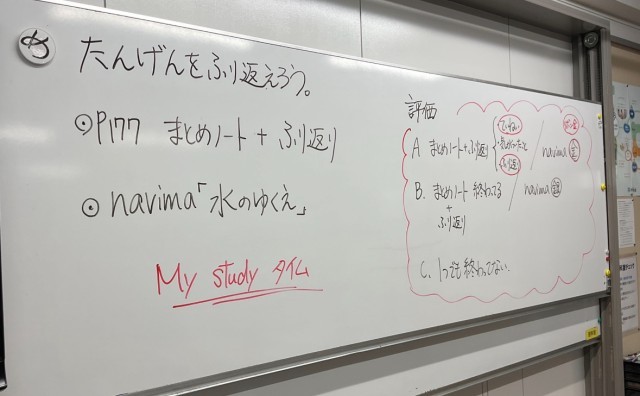 め
たんげんをふり返えろう。
⊙P177 まとめノート + ふり返り
⊙ navima「水のゆくえ」
My study タイム
評価
A まとめノート+ふり返り
ふり返り
/ navima
B. まとめノート 終わってる / navima
+
ふり返り
C. 1つでも終わってない.